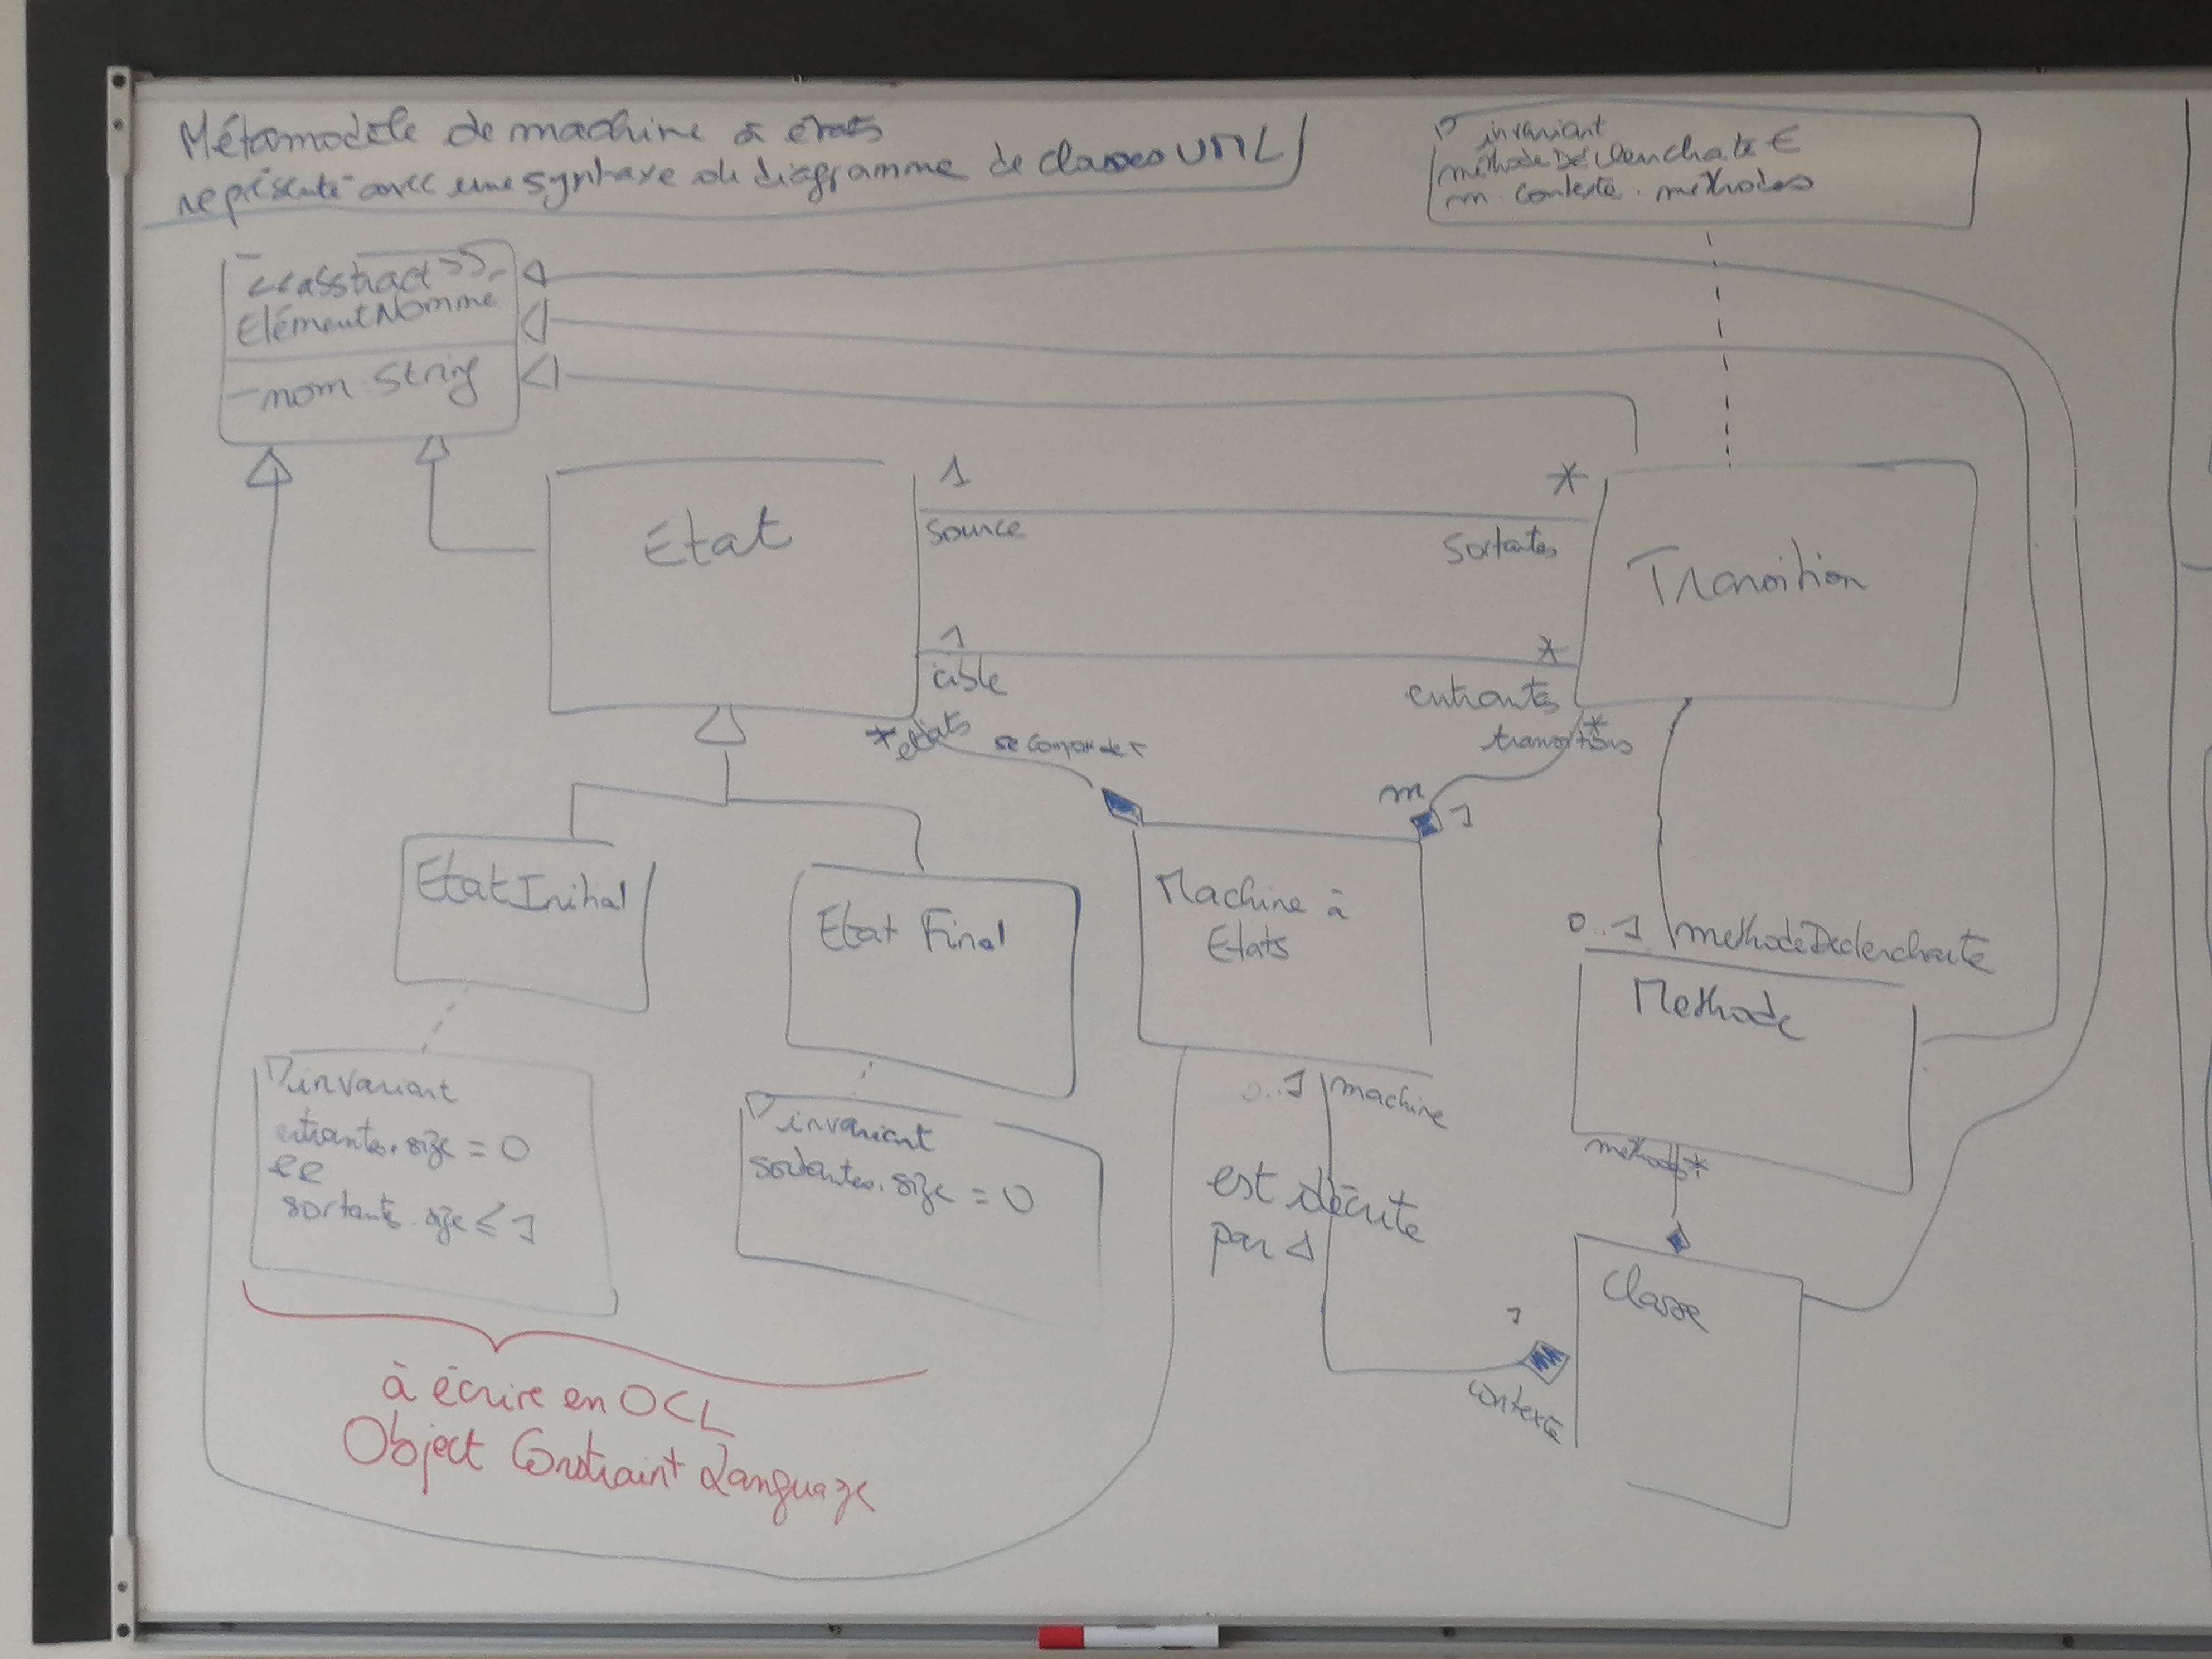 Métamodèle de machine à états
représenté avec une syntaxe de diagramme de classes UML
invariant
méthodeDéclenchate ∈
m. contexte. methodes
<<abstract>>
ElémentNomme
- nom: String
Etat
1
source
*
sortantes
Transition
1
cible
*
entrantes
* etats
se composer
transitions *
m
1
EtatInitial
Etat Final
Machine à
Etats
0..1 methodeDeclenchante
Methode
invariant
entrantes.size = 0
et
sortantes.size ≤ 1
invariant
sortantes.size = 0
0..1 machine
est décrite
par
methodes *
1
contexte
Classe
à écrire en OCL
Object Constraint Language